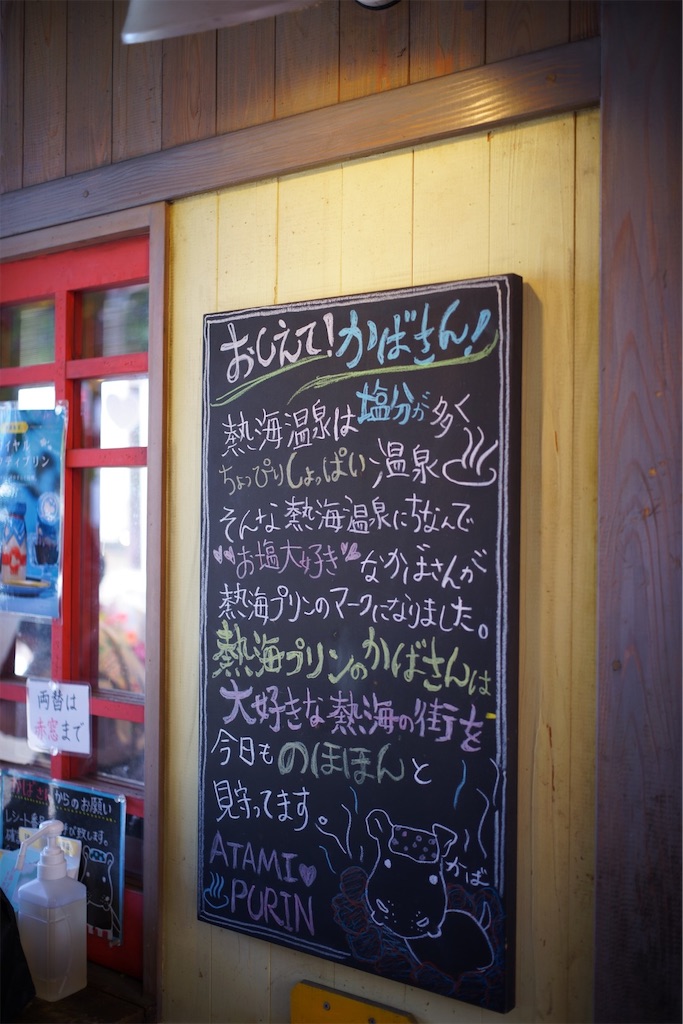 おしえて！かばさん！
熱海温泉は塩分が多く
ちょっぴりしょっぱい温泉
そんな熱海温泉にちなんで
お塩大好きなかばさんが
熱海プリンのマークになりました。
熱海プリンのかばさんは
大好きな熱海の街を
今日ものほほんと
見守ってます。
ATAMI
PURIN
かば
両替は
赤窓まで
からのお願い